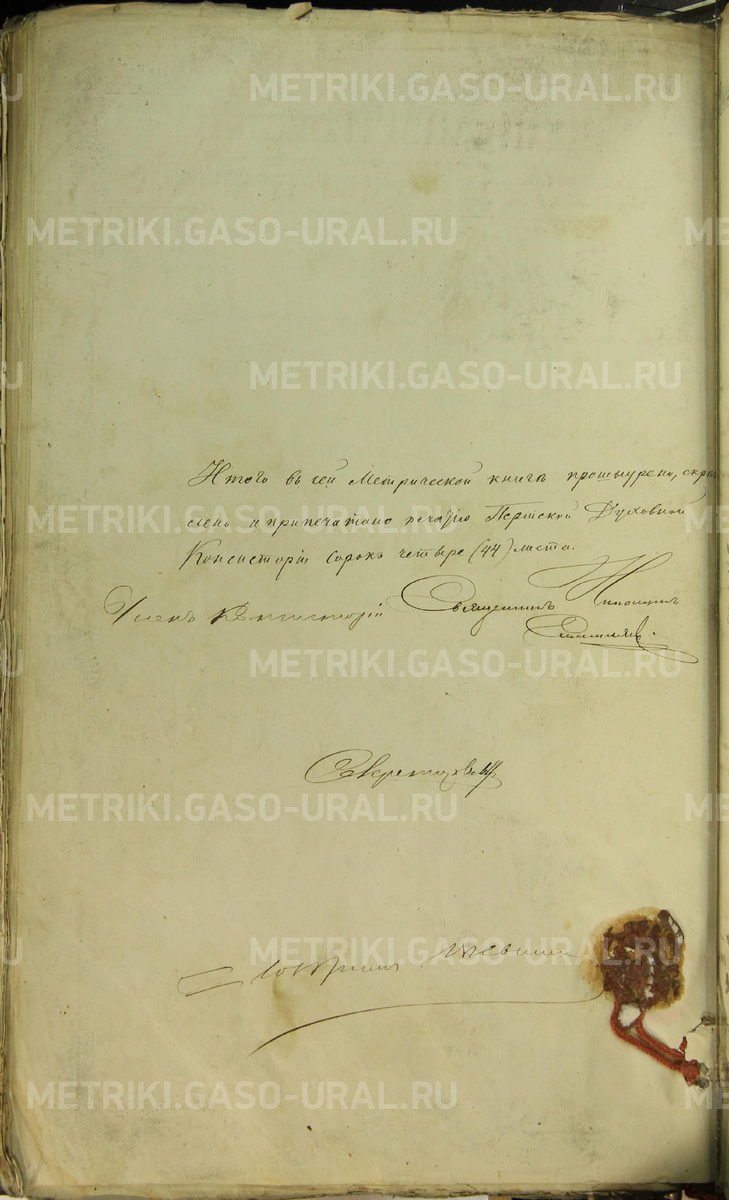 METRIKI.GASO-URAL.RU
METRIKI.GASO-URAL.RU
METRIKI.GASO-URAL.RU
Итого въ сей Метрической книгѣ прошнурено, скрѣп
METRIKI.GASO-URAL.RU
лено и припечатано печатію Пермской Духовной
Консисторіи сорокъ четыре (44) листа.
Членъ Консисторіи Священникъ
METRIKI.GASO-URAL.RU
Секретарь
METRIKI.GASO-URAL.RU
METRIKI.GASO-URAL.RU
METRIKI.GASO-URAL.RU